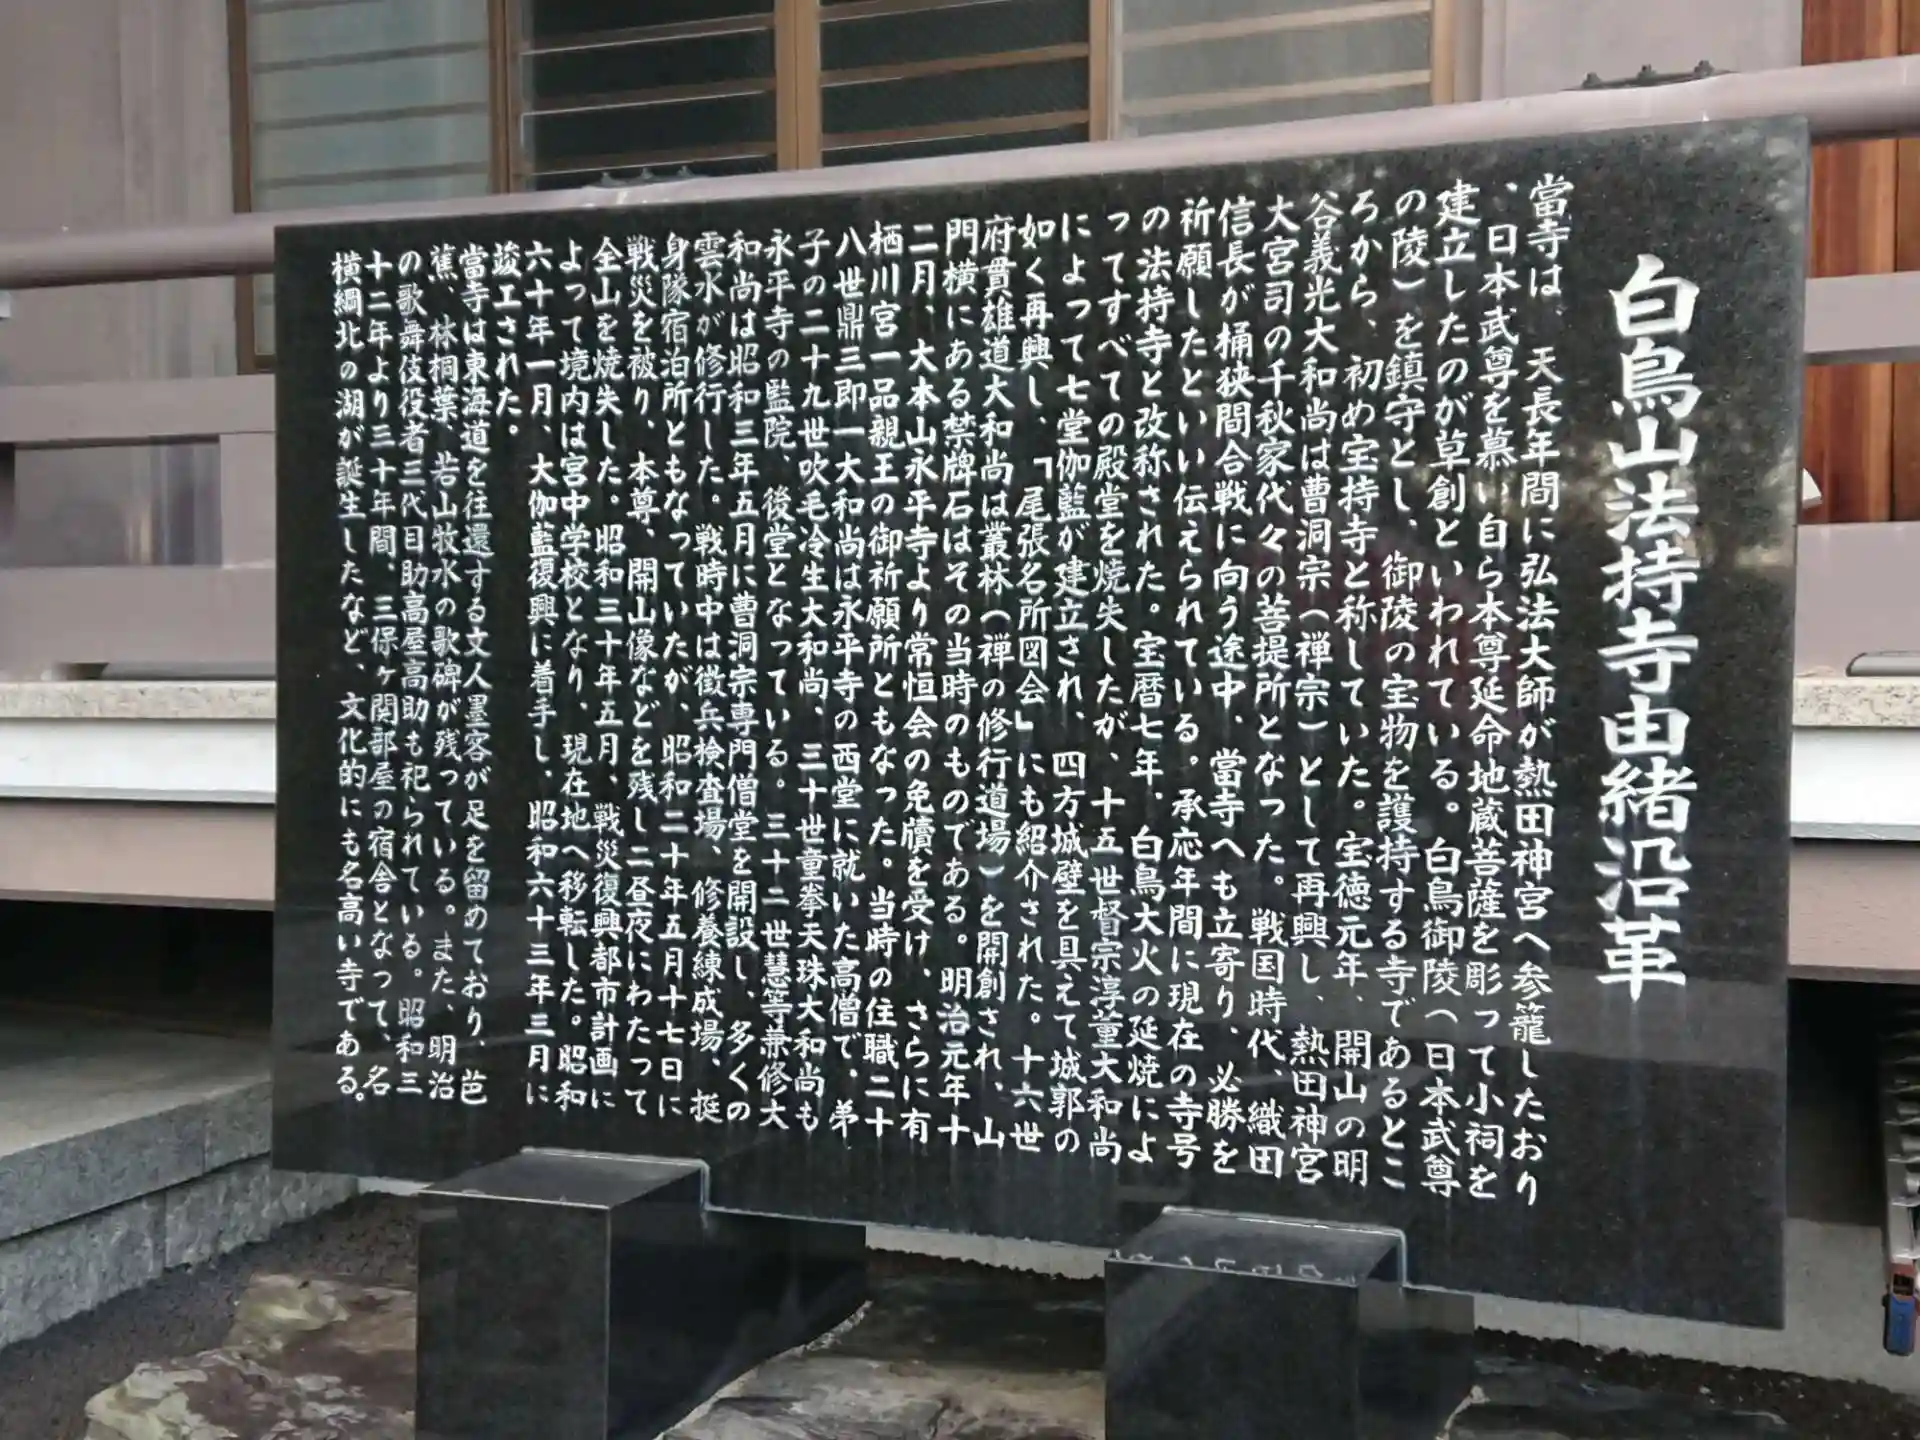 白鳥山法持寺由緒沿革
當寺は、天長年間に弘法大師が熱田神宮へ参籠したおり
、日本武尊を慕い自ら本尊延命地蔵菩薩を彫って小祠を
建立したのが草創といわれている。白鳥御陵（日本武尊
の陵）を鎮守とし、御陵の宝物を護持する寺であるとこ
ろから、初め宝持寺と称していた。宝徳元年、開山の明
谷義光大和尚は曹洞宗（禅宗）として再興し、熱田神宮
大宮司の千秋家代々の菩提所となった。戦国時代、織田
信長が桶狭間合戦に向う途中、當寺へも立寄り、必勝を
祈願したといい伝えられている。承応年間に現在の寺号
の法持寺と改称された。宝暦七年、白鳥大火の延焼によ
ってすべての殿堂を焼失したが、十五世督宗淳董大和尚
によって七堂伽藍が建立され、四方城壁を具えて城郭の
如く再興し、「尾張名所図会」にも紹介された。十六世
府貫雄道大和尚は叢林（禅の修行道場）を開創され、山
門横にある禁牌石はその当時のものである。明治元年十
二月、大本山永平寺より常恒会の免牘を受け、さらに有
栖川宮一品親王の御祈願所ともなった。当時の住職二十
八世鼎三即一大和尚は永平寺の西堂に就いた高僧で、弟
子の二十九世吹毛冷生大和尚、三十世童拳天珠大和尚も
永平寺の監院、後堂となっている。三十二世慧等兼修大
和尚は昭和三年五月に曹洞宗専門僧堂を開設し、多くの
雲水が修行した。戦時中は徴兵検査場、修養練成場、挺
身隊宿泊所ともなっていたが、昭和二十年五月十七日に
戦災を被り、本尊、開山像などを残し二昼夜にわたって
全山を焼失した。昭和三十年五月、戦災復興都市計画に
よって境内は宮中学校となり、現在地へ移転した。昭和
六十年一月、大伽藍復興に着手し、昭和六十三年三月に
竣工された。
當寺は東海道を往還する文人墨客が足を留めており、芭
蕉、林桐葉、若山牧水の歌碑が残っている。また、明治
の歌舞伎役者三代目助高屋高助も祀られている。昭和三
十二年より三十年間、三保ヶ関部屋の宿舎となって、名
横綱北の湖が誕生したなど、文化的にも名高い寺である。